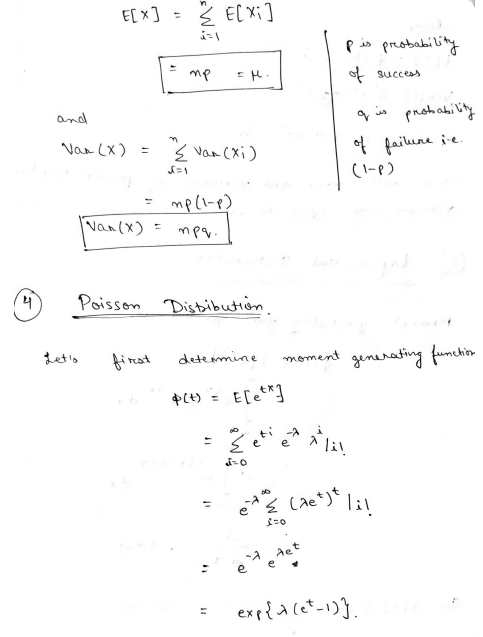 E[X] = n Σ i=1 E[Xi]
= np = μ.
p is probability
of success
q is probability
of failure i.e.
(1-p)
and
Var(X) = n Σ i=1 Var(Xi)
= np(1-p)
Var(X) = npq.
4 Poisson Distribution.
Let's first determine moment generating function
φ(t) = E[e^tx]
= ∞ Σ i=0 e^ti e^-λ λ^i/i!
= e^-λ ∞ Σ i=0 (λe^t)^t/i!
= e^-λ e^λe^t
= exp{λ(e^t-1)}.